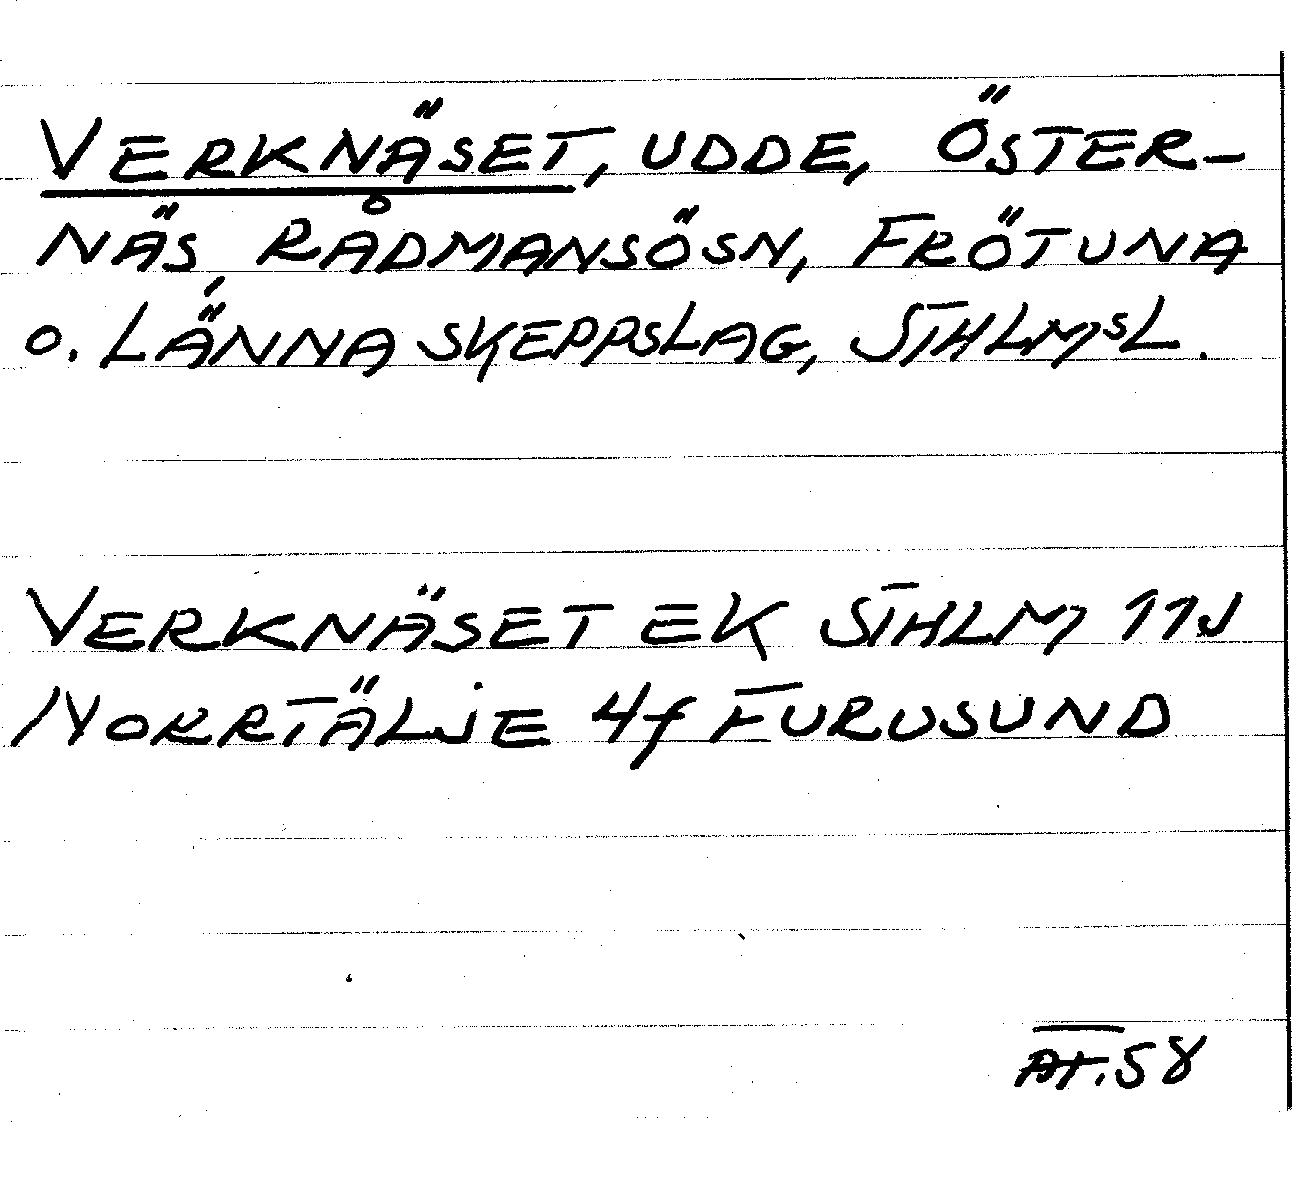 VERKNÄSET, UDDE, ÖSTER-
NÄS, RÅDMANSÖSN, FRÖTUNA
O. LÄNNA SKEPPSLAG, STHLMSL.
VERKNÄSET EK STHLM 11J
NORRTÄLJE 4f FURUSUND
AT. 58